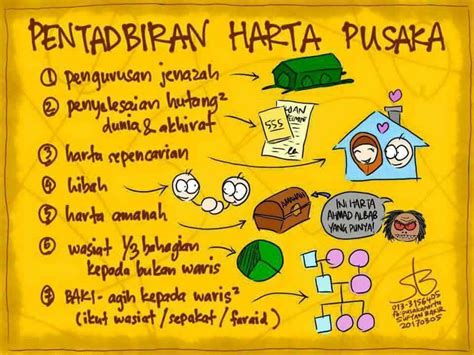 PENTADBIRAN HARTA PUSAKA
① pengurusan jenazah
② penyelesaian hutang²
dunia & akhirat
③ harta sepencarian
④ hibah
⑤ harta amanah
⑥ wasiat 1/3 bahagian
kepada bukan waris
⑦ BAKI - agih kepada waris²
(ikut wasiat / sepakat / faraid)
555
AMANAH
INI HARTA
AHMAD ALBAB
YANG PUNYA!
013-3156405
SUFYAN BAKIR
20170305